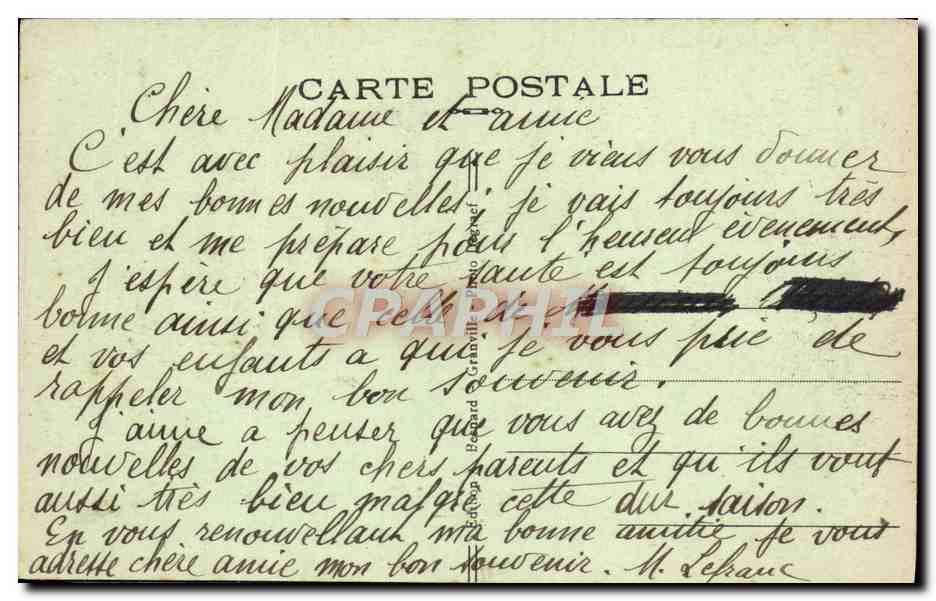 CARTE POSTALE
Chère Madame et amie
C'est avec plaisir que je viens vous donner
de mes bonnes nouvelles, je vais toujours très
bien et me prépare pour l'heureux évenement,
J'espère que votre santé est toujours
bonne ainsi que celle de
et vos enfants a qui je vous prie de
rappeler mon bon souvenir.
J'aime a penser que vous avez de bonnes
nouvelles de vos chers parents et qu'ils vont
aussi très bien malgré cette dur saison.
En vous renouvellant ma bonne amitié je vous
adresse chère amie mon bon souvenir. M. Lefranc
Edition Bernard Granville - Photo
CPAPHIL